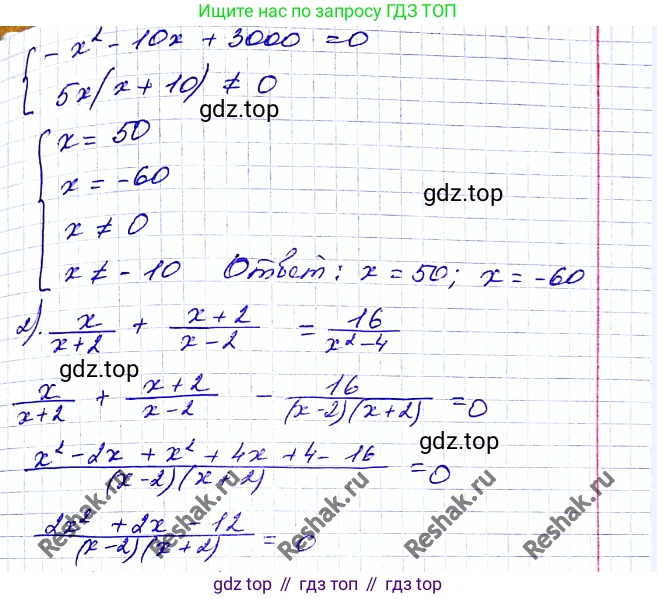 Ищите нас по запросу ГДЗ ТОП
- x² - 10x + 3000 = 0
5x(x + 10) ≠ 0
gdz.top
x = 50
x = -60
gdz.top
x ≠ 0
x ≠ - 10 Ответ: x = 50; x = -60
2). x/(x+2) + (x+2)/(x-2) = 16/(x²-4)
gdz.top
x/(x+2) + (x+2)/(x-2) - 16/((x-2)(x+2)) = 0
gdz.top
(x² - 2x + x² + 4x + 4 - 16)/((x-2)(x+2)) = 0
(2x² + 2x - 12)/((x-2)(x+2)) = 0
Reshak.ru Reshak.ru Reshak.ru Reshak.ru Reshak.ru
gdz top // гдз топ // gdz.top